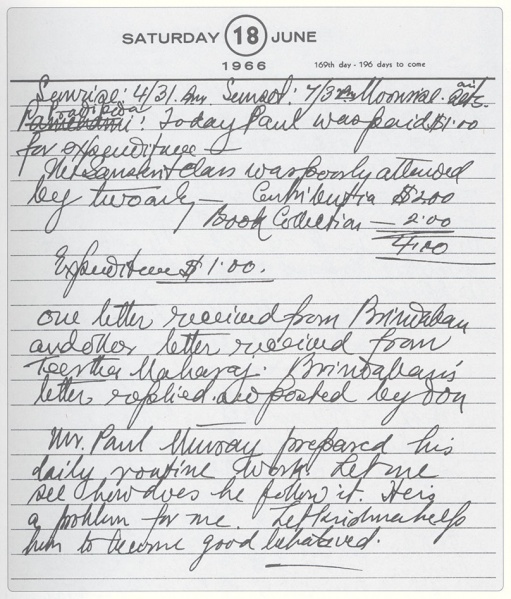 SATURDAY 18 JUNE
1966 169th day - 196 days to come
Sunrise: 4/31. Am Sunset: 7/3 Moonrise.
Today Paul was paid $1.00
for expenditures —
The Sanskrit Class was poorly attended
by two only — Contribution $2.00
Book Collection — 2.00
4.00
Expenditure $1.00.
one letter received from Brindaban
and other letter received from
Teertha Maharaj. Brindaban's
letter replied and posted by Don
Mr. Paul Murray prepared his
daily routine work. Let me
see how does he follow it. He is
a problem for me. Let Krishna help
him to become good behaved.